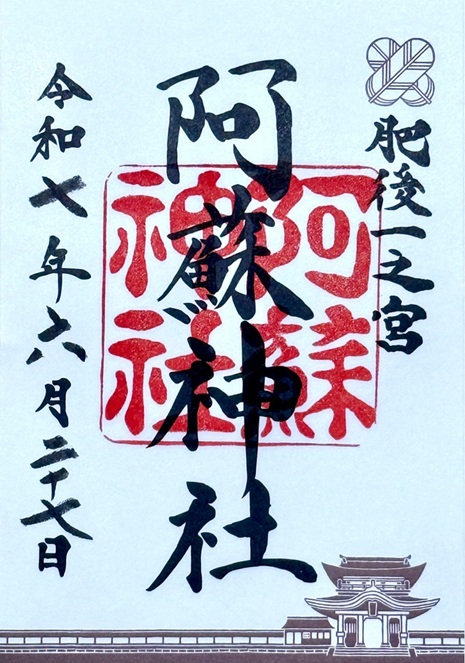 肥後一之宮
阿蘇神社
阿蘇
神社
令和七年六月二十七日